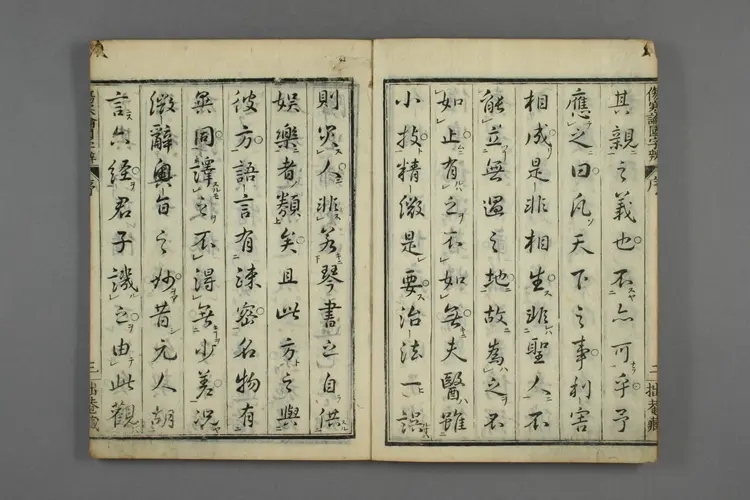 傷寒論國字辨 序 二 拙菴藏
其親之義也不亦可乎予
應之曰凡天下之事利害
相成是非相生非聖人不
能立無過之地故為之不
如止有之不如無夫醫雖
小技精微是要治法一誤
則災人非若琴書之自供
娛樂者類矣且此方之與
彼方語言有疎密名物有
異同譯之不得無少差況
微辭奧旨之妙昔元人胡
言六經君子譏之由此觀
序 三 拙菴藏